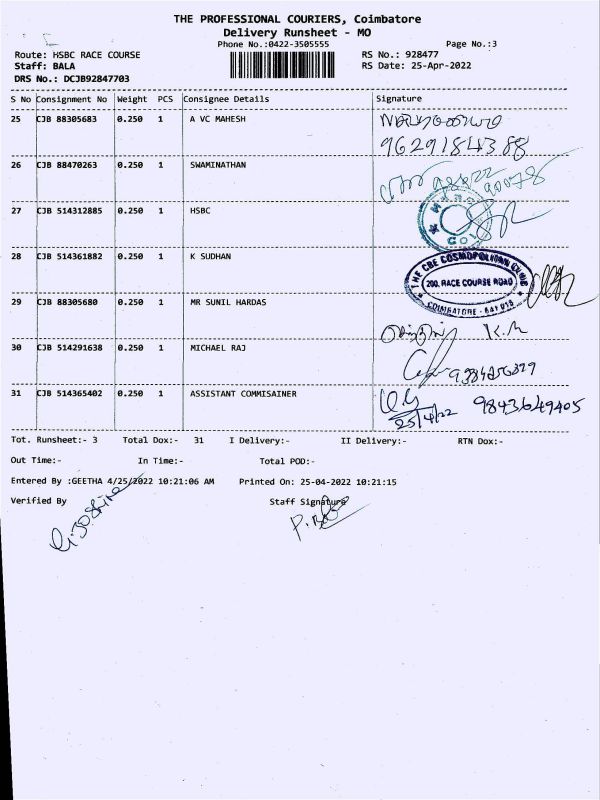 THE PROFESSIONAL COURIERS, Coimbatore
Delivery Runsheet - MO
Phone No.:0422-3505555 Page No.:3
Route: HSBC RACE COURSE RS No.: 928477
Staff: BALA RS Date: 25-Apr-2022
DRS No.: DCJB92847703
S No Consignment No Weight PCS Consignee Details Signature
25 CJB 88305683 0.250 1 A VC MAHESH
9629184388
26 CJB 88470263 0.250 1 SWAMINATHAN
27 CJB 514312885 0.250 1 HSBC
28 CJB 514361882 0.250 1 K SUDHAN
THE CBE COSMOPOLITAN CLUB
200, RACE COURSE ROAD
COIMBATORE - 641 018
29 CJB 88305680 0.250 1 MR SUNIL HARDAS
30 CJB 514291638 0.250 1 MICHAEL RAJ
31 CJB 514365402 0.250 1 ASSISTANT COMMISAINER
25/4/22 9843649405
Tot. Runsheet:- 3 Total Dox:- 31 I Delivery:- II Delivery:- RTN Dox:-
Out Time:- In Time:- Total POD:-
Entered By :GEETHA 4/25/2022 10:21:06 AM Printed On: 25-04-2022 10:21:15
Verified By Staff Signature